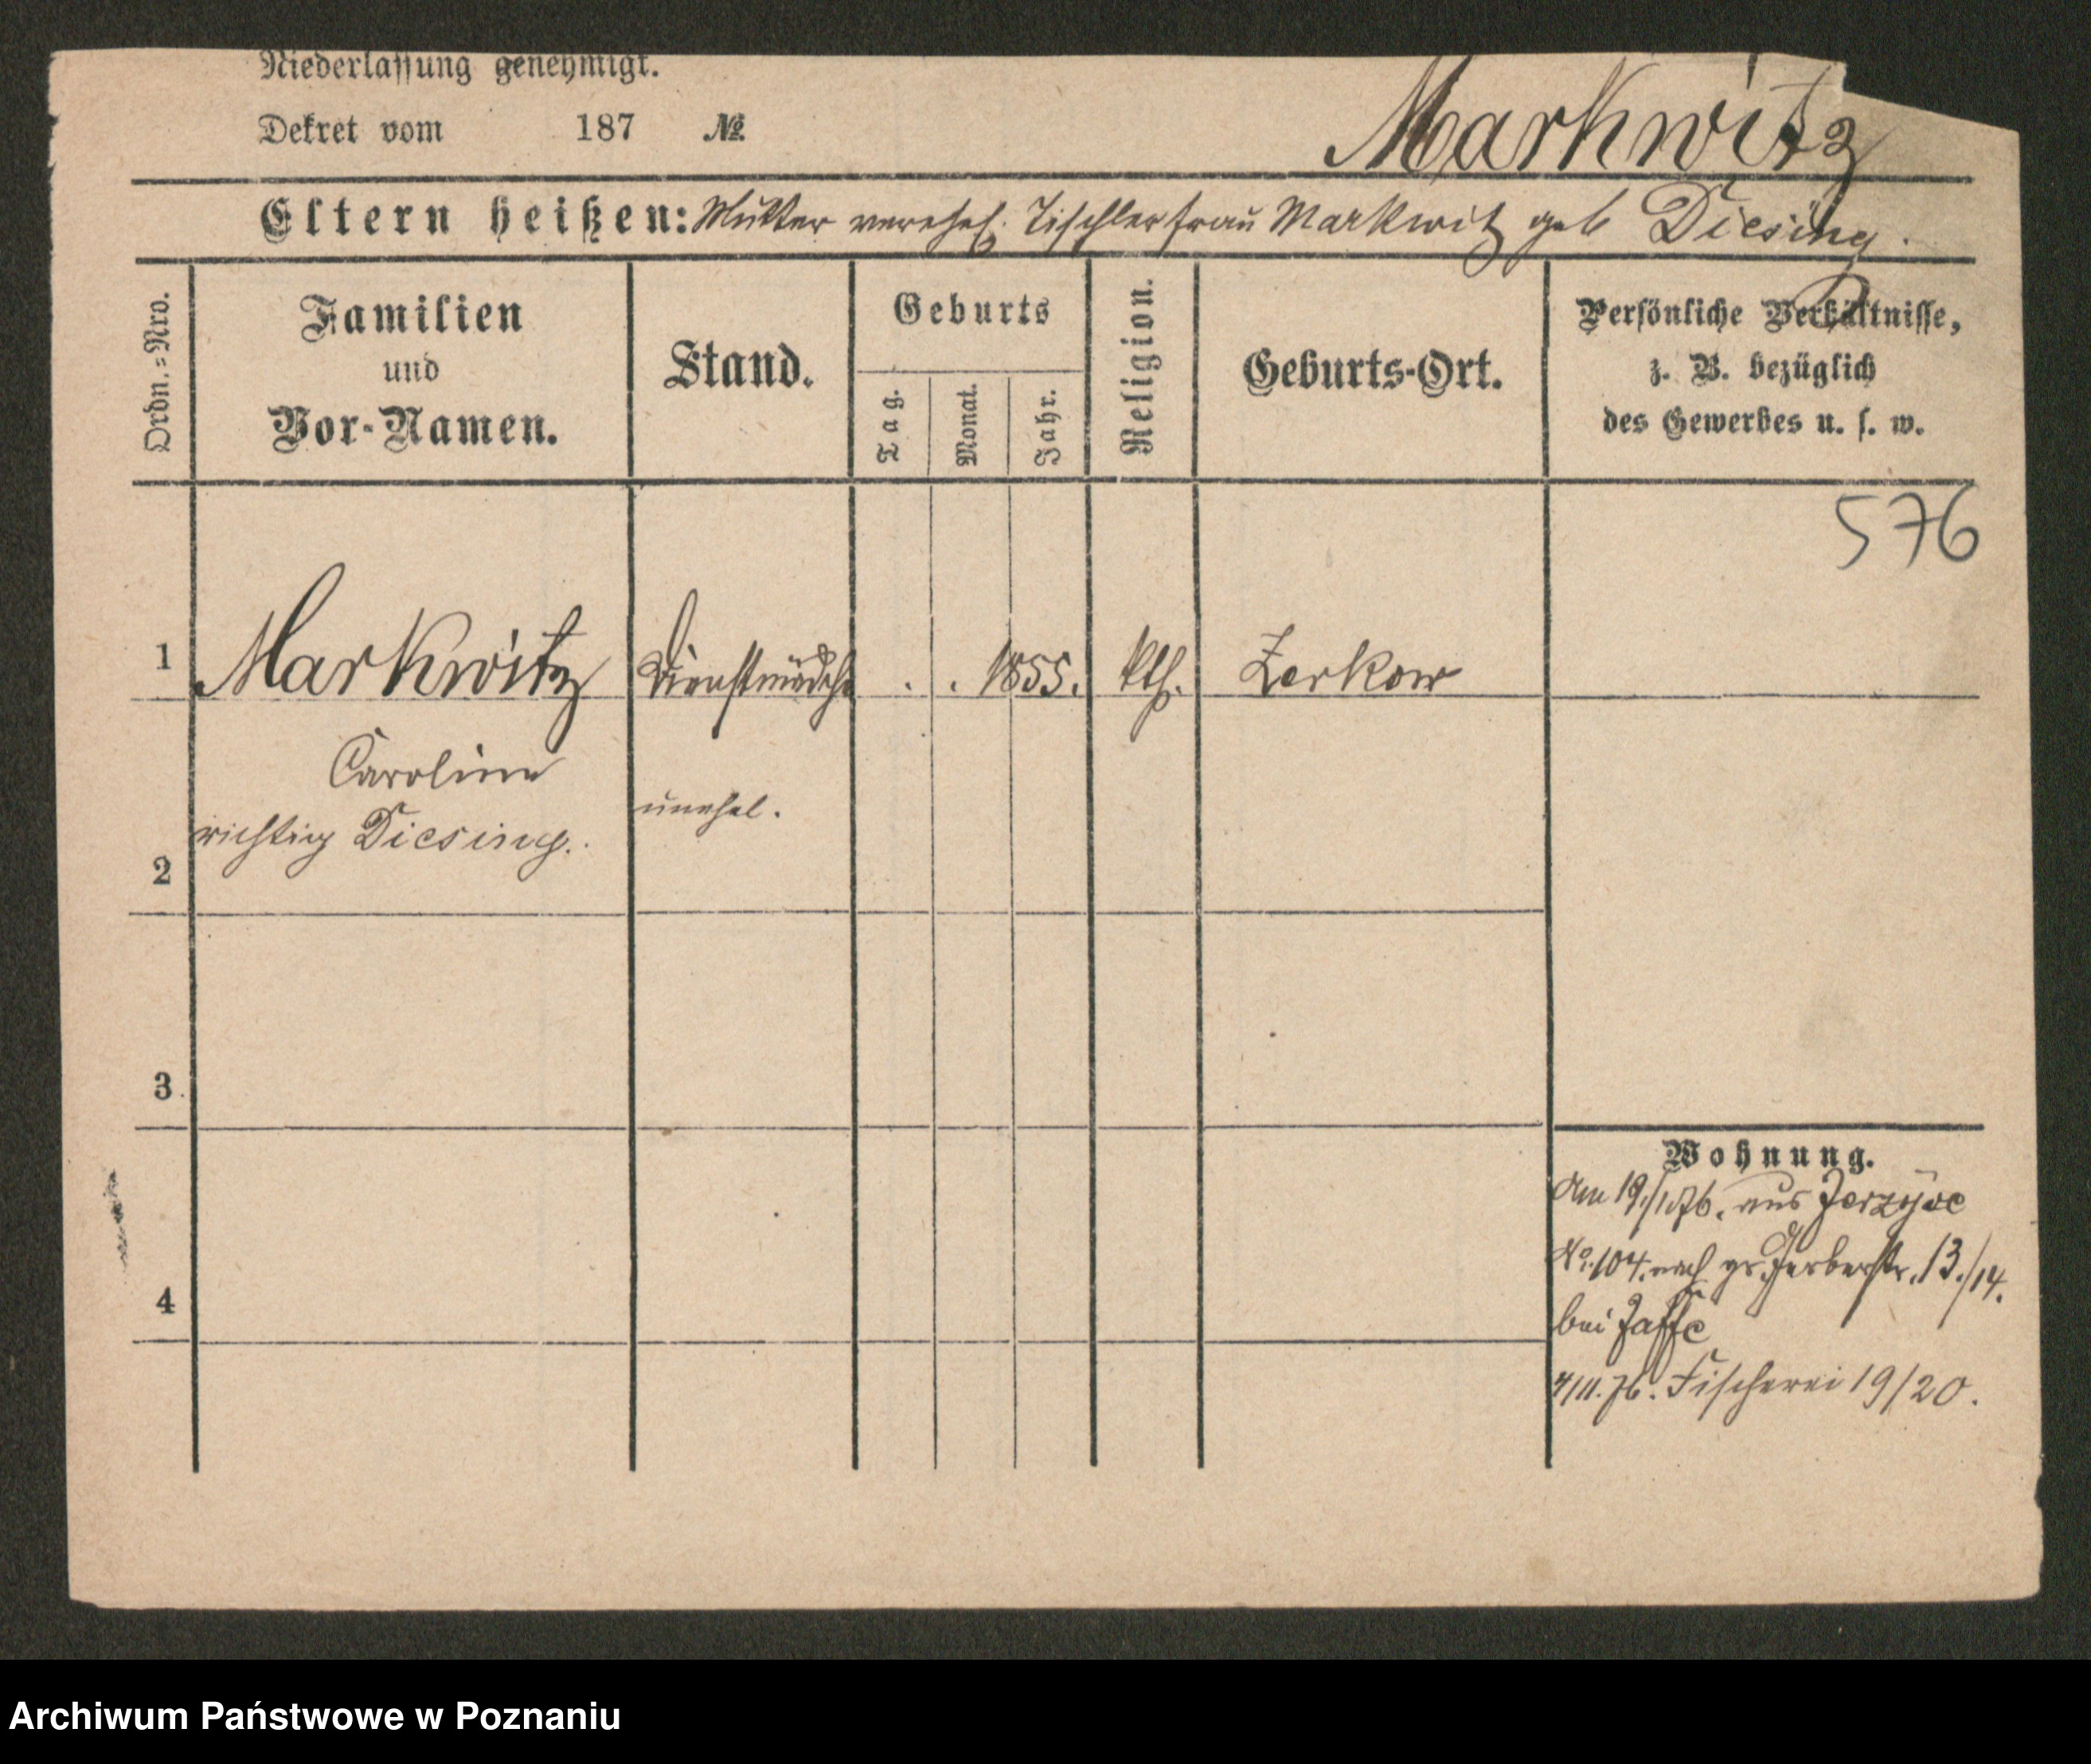 Niederlassung genehmigt.
Dekret vom 187 №
Markwitz
Eltern heißen: Mutter verehel. Tischlerfrau Markwitz geb Diesing.
Ordn.=Nro.
Familien
und
Vor-Namen.
Stand.
Geburts
Tag.
Monat.
Jahr.
Religion.
Geburts-Ort.
Persönliche Verhältnisse,
z. B. bezüglich
des Gewerbes u. s. w.
576
1 Markwitz Dienstmädch . . 1855. kth. Zerkow
Caroline
unehel.
richtig Diesing.
2
3
4
Wohnung.
Am 19/1 76. aus Jerzyce
No. 104. nach gr. Gerberstr. 13./14.
bei Jaffe
4/11. 76. Fischerei 19/20.
Archiwum Państwowe w Poznaniu